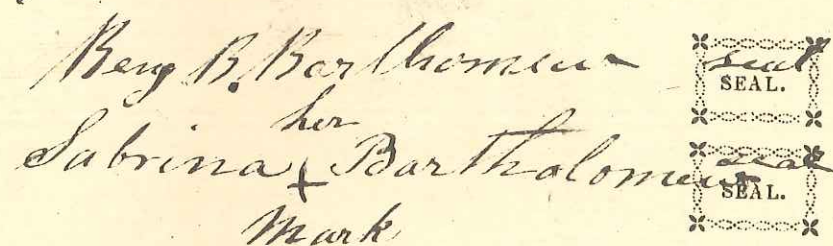 Benj B. Barlhomew seal
SEAL.
her
Sabrina + Bartholomew seal
SEAL.
Mark